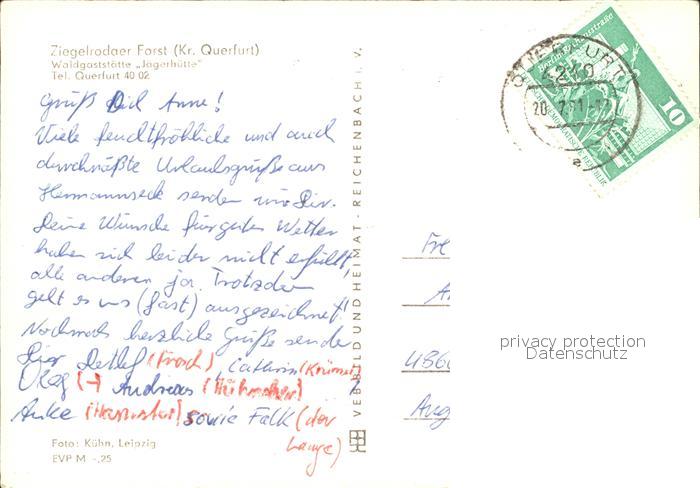 Ziegelrodaer Forst (Kr. Querfurt)
Waldgaststätte „Jägerhütte"
Tel. Querfurt 40 02
Grüß Dich Anne!
Viele feuchtfröhliche und auch
durchnäßte Urlaubsgrüße aus
Hermannseck senden wir Dir.
Deine Wünsche für gutes Wetter
haben sich leider nicht erfüllt,
alle anderen ja. Trotzdem
gelt es uns (fast) ausgezeichnet!
Nochmals herzliche Grüße senden
Dir Detlef (Frosch), Cathrin (Krümel),
Oleg (-) Andreas (Hühnchen)
Anke (Hamster) sowie Falk (der
Lange)
Foto: Kühn, Leipzig
EVP M -,25
VEB BILD UND HEIMAT · REICHENBACH i. V.
QUERFURT
4240
20.7.81-17
a
Berlin, Leninplatz
10
Fre
Au
4860
Aug
privacy protection
Datenschutz